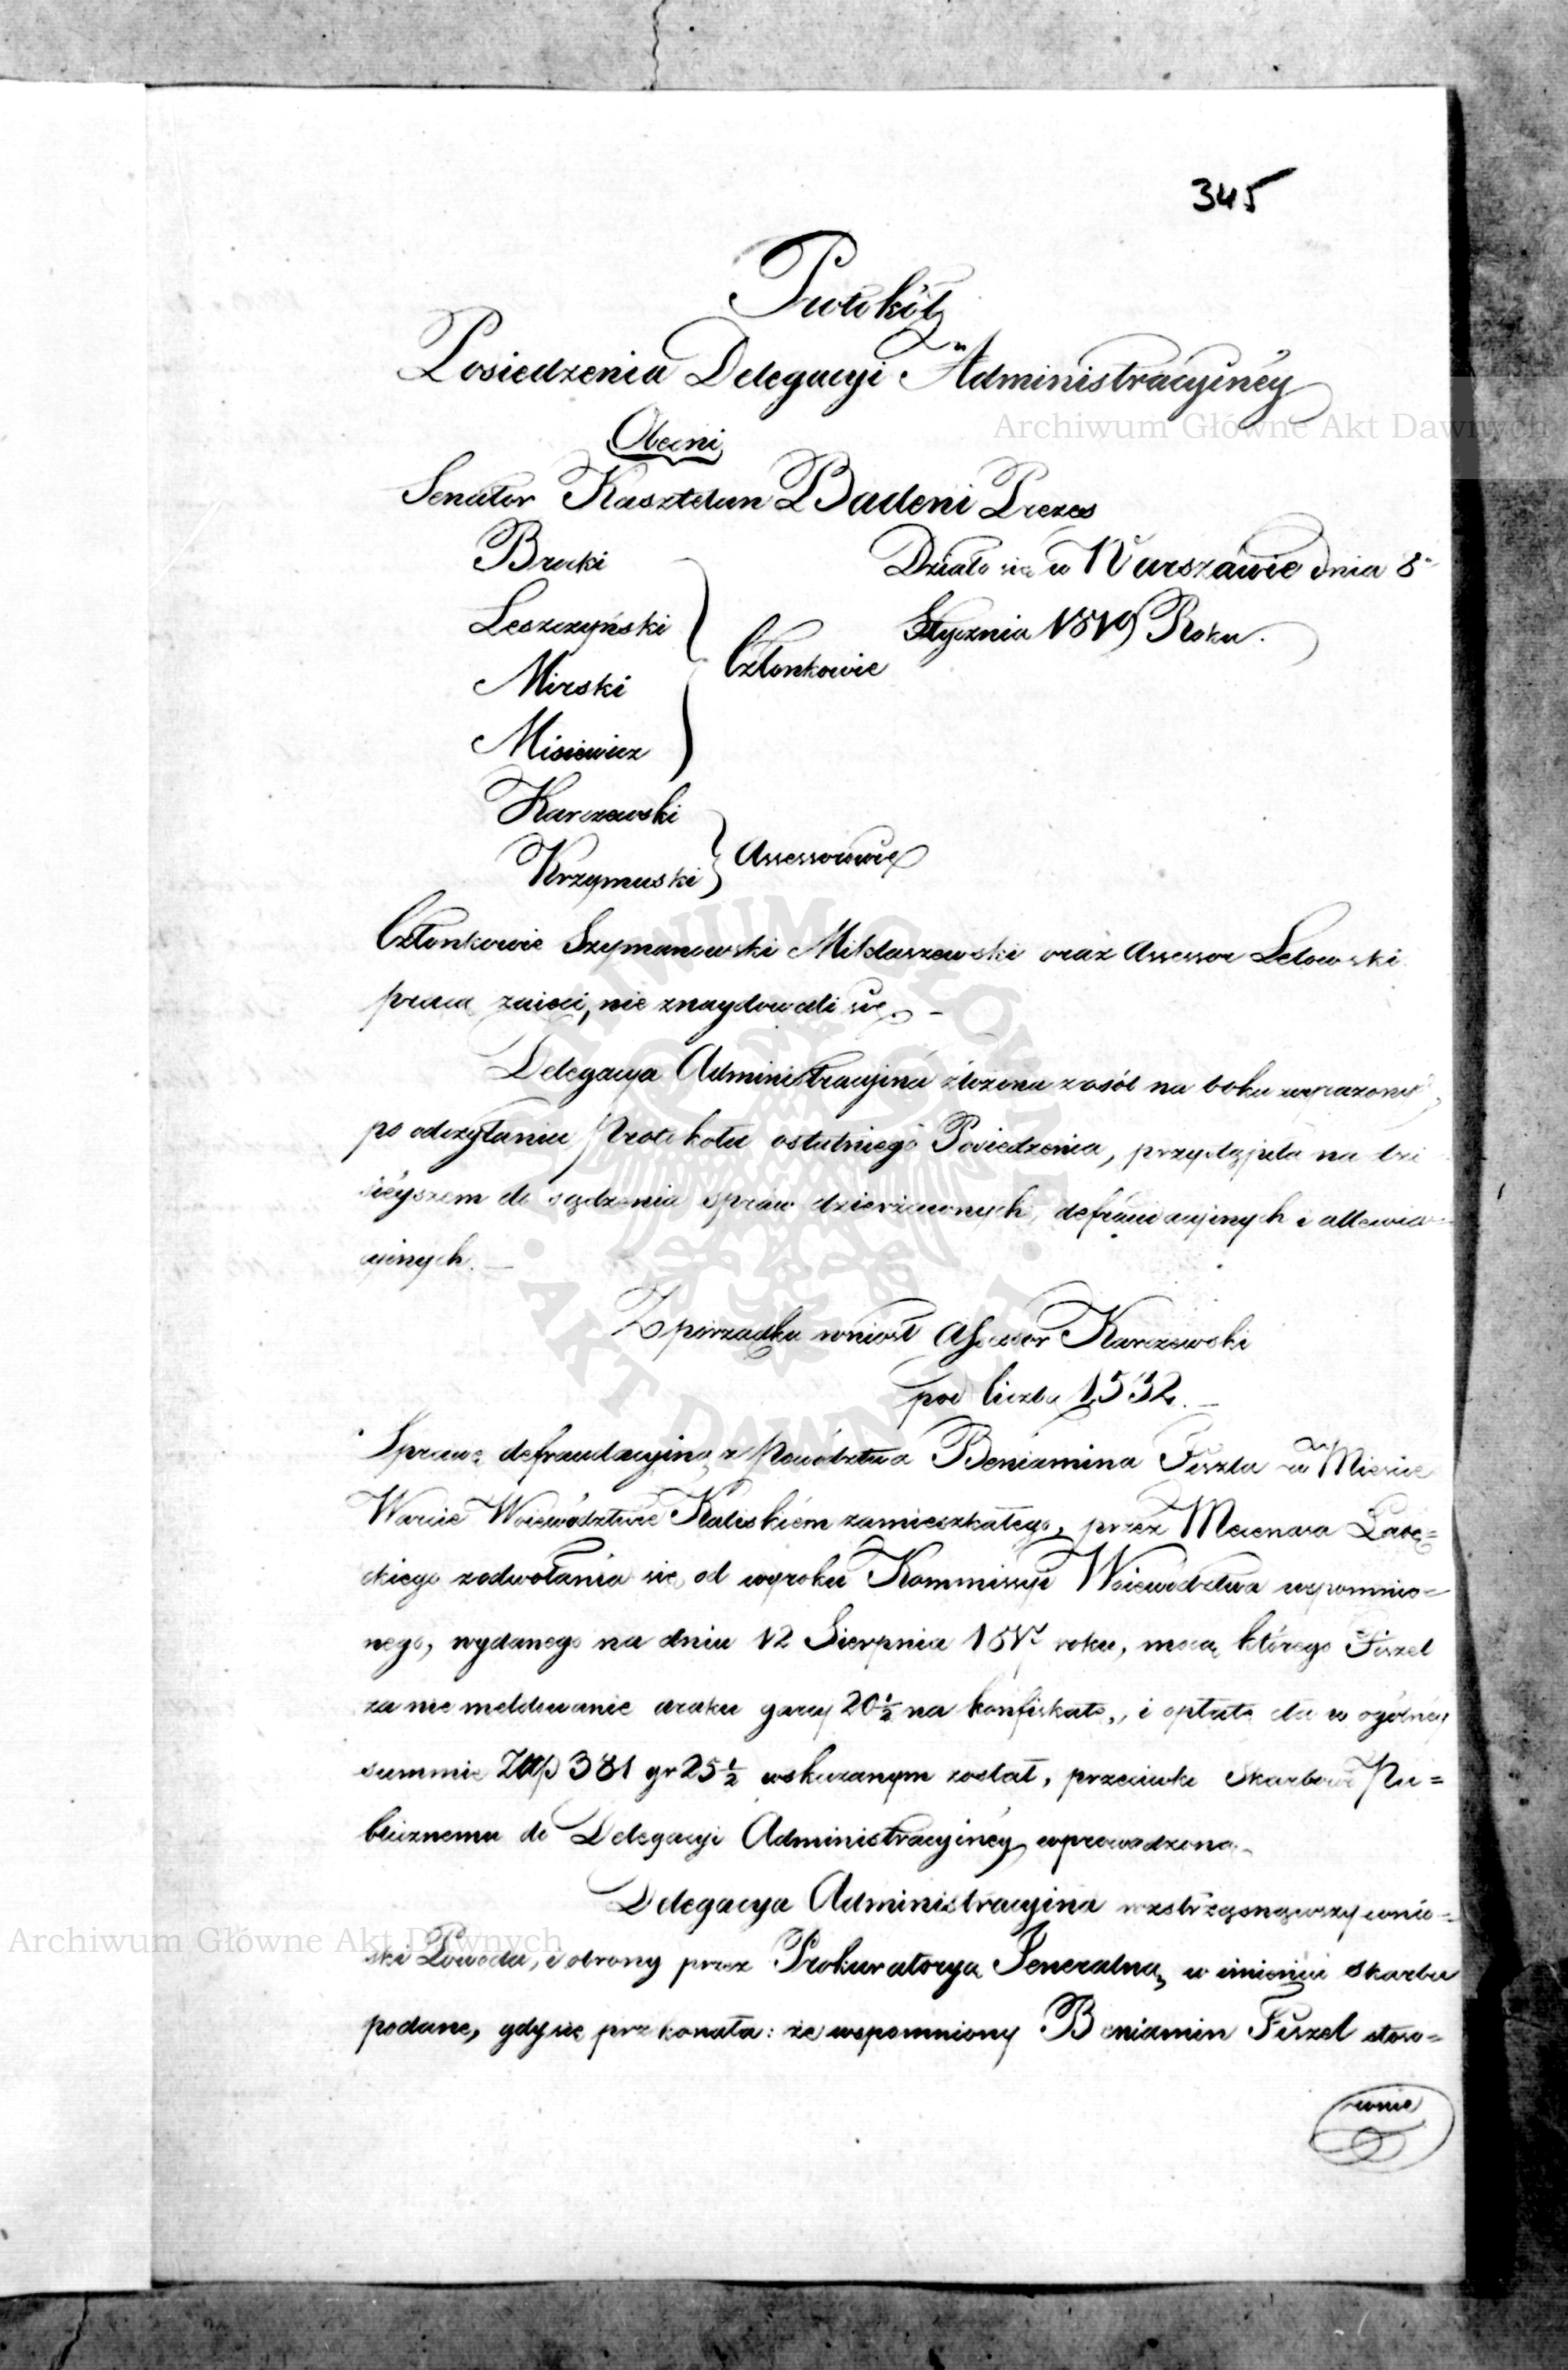 345
Protokół
Posiedzenia Delegacyi Administracyinéy
Obecni
Senator Kasztelan Badeni Prezes
Brocki
Działo się w Warszawie dnia 8
Leszczyński
Stycznia 1819 Roku.
Mirski
Członkowie
Misiewicz
Karczewski
Krzymuski
Assessorowie
Członkowie Szymanowski Miklaszewski oraz Assessor Lelowski
pracą zaięci, nie znaydowali się. –
Delegacya Administracyina złożona z osób na boku wyrażonych,
po odczytaniu Protokołu ostatniego Posiedzenia, przystąpiła na dzi
sieyszem do sądzenia spraw dzierżawnych, defraudacyinych i allewia=
cyinych. –
Z porządku wniosł Assessor Karczewski
pod liczbą 1532. –
Sprawę defraudacyiną z Powództwa Beniamina Fiszla w Mieście
Warcie Woiewództwie Kaliskiém zamieszkałego, przez Mecenasa
z odwołania się od wyroku Kommissyi Woiewództwa wspomnio=
nego, wydanego na dniu 12 Sierpnia 1817 roku, mocą którego Fiszel
za nie meldowanie araku garcy 20½ na konfiskatę, i opłatę cła w ogólnéy
summie Złtp 381 gr 25½ wskazanym został, przeciwko Skarbowi Pu=
blicznemu do Delegacyi Administracyinéy wprowadzoną. –
Delegacya Administracyina roztrząsnąwszy wnio=
ski Powoda, i obrony przez Prokuratoryą Jeneralną w imieniu Skarbu
podane, gdy się przekonała: że wspomniony Beniamin Fiszel stoso=
wnie
Archiwum Główne Akt Dawnych
Archiwum Główne Akt Dawnych
ARCHIWUM GŁÓWNE · AKT DAWNYCH ·